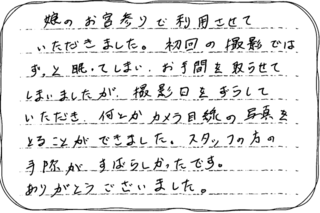 娘のお宮参りで利用させて
いただきました。初回の撮影では
ずっと眠ってしまい、お手間を取らせて
しまいましたが、撮影日をずらして
いただき、何とかカメラ目線の写真を
とることができました。スタッフの方の
手際がすばらしかったです。
ありがとうございました。